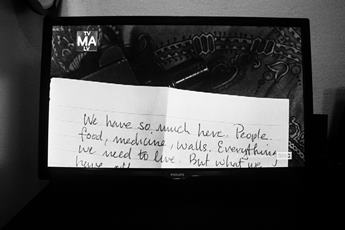 TV
MA
LV
We have so much here. People.
food, medicine, walls. Everything
we need to live. But what we
have
PHILIPS